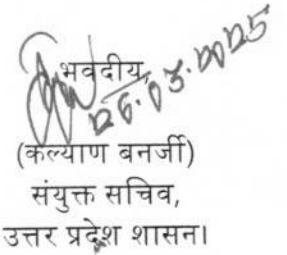 भवदीय,
26.03.2025
(कल्याण बनर्जी)
संयुक्त सचिव,
उत्तर प्रदेश शासन।